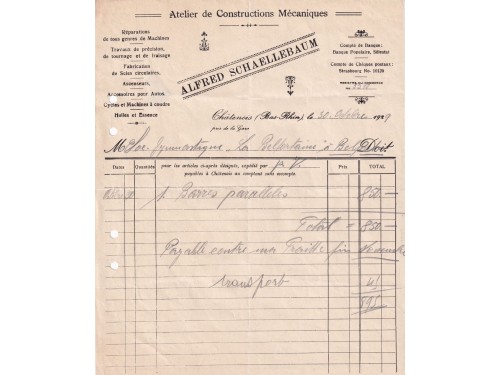 Atelier de Constructions Mécaniques
Réparations
de tous genres de Machines
Travaux de précision,
de tournage et de fraisage
Fabrication
de Scies circulaires,
Ascenseurs,
Accessoires pour Autos,
Cycles et Machines à coudre
Huiles et Essence
ALFRED SCHAELLEBAUM
Compte de Banque:
Banque Populaire, Sélestat
Compte de Chèques postaux:
Strasbourg No
REGISTRE DU COMMERCE
Châtenois (Bas-Rhin) le 30 Octobre 1929
près de la Gare
M Soc. Gymnastique "La à Doit
Dates Quantités pour les articles ci-après désignés, expédié par
payables à Châtenois au comptant sans escompte. Prix TOTAL
1 Barres parallèles 850 —
Total = 850 —
Payable contre ma Traite fin Novembre
transport 45
895